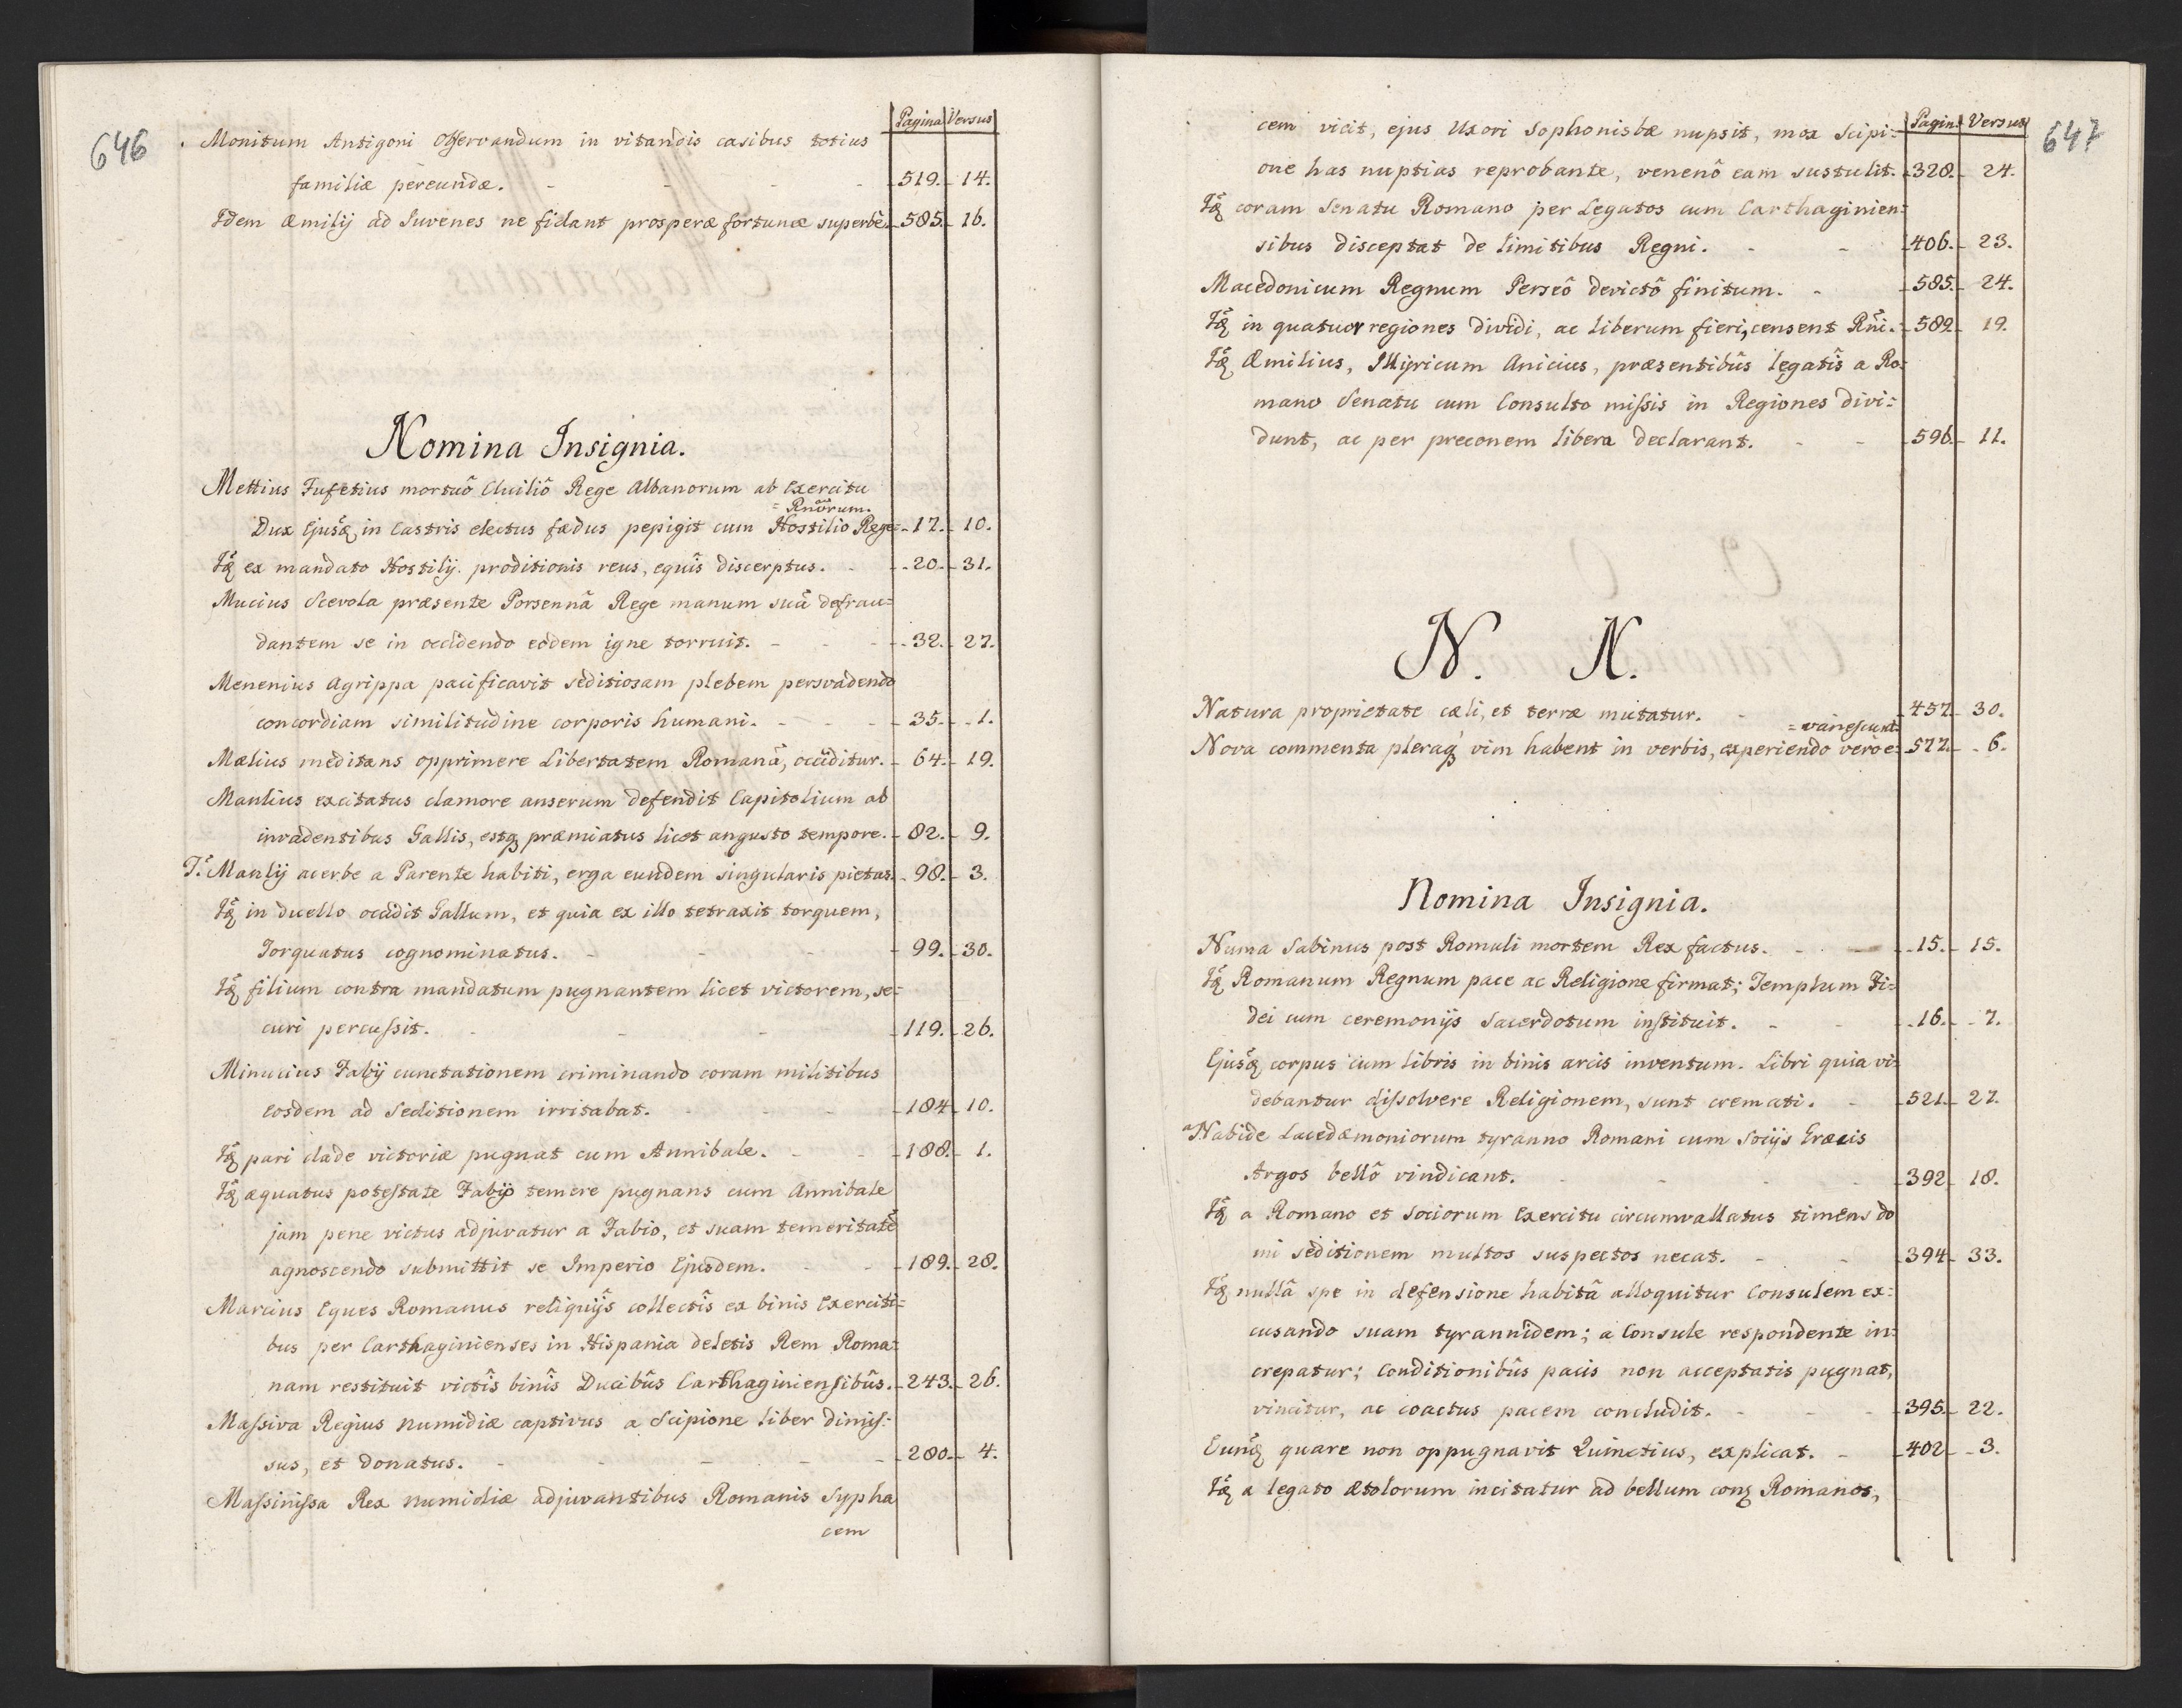 646
Pagina Versus
Monitum Antigoni Observandum in vitandis casibus totius
familiæ pereundæ. - - - - 519. - 14.
Idem Æmilij ad Juvenes ne fidant prosperæ fortunæ superbè. - 585. - 16.
Nomina Insignia.
Mettius Fufetius mortuô Cluiliô Rege Albanorum ab Exercitu
= Rnôrum.
Dux Ejusq̃ in Castris electus fœdus pepigit cum Hostilio Rege= - 17. - 10.
Iq̃ ex mandato Hostilij proditionis reus, equis discerptus. - - 20. - 31.
Mucius Scevola præsente Porsennâ Rege manum suã defrau=
dantem se in occidendo eôdem igne torruit. - - - 32. - 27.
Menenius Agrippa pacificavit seditiosam plebem persvadendo
concordiam similitudine corporis humani. - - - 35. - 1.
Mælius meditans opprimere Libertatem Romanã, occiditur. - 64. - 19.
Manlius excitatus clamore anserum defendit Capitolium ab
invadentibus Gallis, estq; præmiatus licet angusto tempore. - 82. - 9.
T: Manlij acerbe a Parente habiti, erga eundem singularis pietas. - 98. - 3.
Iq̃ in duello occidit Gallum, et quia ex illo tetraxit torquem,
Torquatus cognominatus. - - - - 99. - 30.
Iq̃ filium contra mandatum pugnantem licet victorem, se=
curi percussit. - - - - 119. - 26.
Minucius Fabij cunctationem criminando coram militibus
eosdem ad Seditionem irritabat. - - - - 184 - 10.
Iq̃ pari clade victoriæ pugnat cum Annibale. - - - 188. - 1.
Iq̃ æquatus potestate Fabij temere pugnans cum Annibale
jam pene victus adjuvatur a Fabio, et suam temeritatẽ
agnoscendo submittit se Imperio Ejusdem. - - - 189. - 28.
Marcius Eques Romanus reliquijs collectis ex binis Exerciti=
bus per Carthaginienses in Hispania deletis Rem Roma=
nam restituit victîs binîs Ducibûs Carthaginiensibûs. - 243. - 26.
Massiva Regius Numidiæ captivus a Scipione liber dimis=
sus, et donatus. - - - - - 280. - 4.
Massinissa Rex Numidiæ adjuvantibus Romanis Sypha
cem
647
Pagina Versus
cem vicit, ejus Uxori Sophonisbæ nupsit, mox Scipi=
one has nuptias reprobante, venenô eam sustulit. - 328. - 24.
Iq̃ coram Senatu Romano per Legatos cum Carthaginien=
sibus disceptat de limitibus Regni. - - - 406. - 23.
Macedonicum Regnum Perseô devictô finitum. - - 585. - 24.
Iq̃ in quatuor regiones dividi, ac liberum fieri, censent Rñi. - 589. - 19.
Iq̃ Æmilius, Illyricum Anicius, præsentibûs legatîs a Ro=
mano Senatu cum Consulto missis in Regiones divi=
dunt, ac per preconem libera declarant. - - - 596. - 11.
N. N.
Natura proprietate cæli, et terræ mutatur. - - 457. - 30.
= vanescunt.
Nova commenta pleraq; vim habent in verbis, experiendo verò e= - 577. - 6.
Nomina Insignia.
Numa Sabinus post Romuli mortem Rex factus. - - - 15. - 15.
Iq̃ Romanum Regnum pace ac Religione firmat; Templum Fi=
dei cum ceremonijs Sacerdotum instituit. - - - 16. - 7.
Ejusq̃ corpus cum libris in binis arcis inventum. Libri quia vi=
debantur dissolvere Religionem, sunt cremati. - - 521. - 27.
a Nabide Lacedæmoniorum tyranno Romani cum Socijs Græcis
Argos bellô vindicant. - - - - 392. - 18.
Iq̃ a Romano et Sociorum Exercitu circumvallatus timens do
mi seditionem multos suspectos necat. - - - 394 - 33.
Iq̃ nullâ spe in defensione habitâ alloquitur Consulem ex=
cusando suam tyrannidem; a Consule respondente in=
crepatur; Conditionibûs pacis non acceptatis pugnat,
vincitur, ac coactus pacem concludit. - - - 395. - 22.
Eunq̃ quare non oppugnavit Quinctius, explicat. - - 402 - 3.
Iq̃ a legato Ætolorum incitatur ad bellum conq; Romanos,